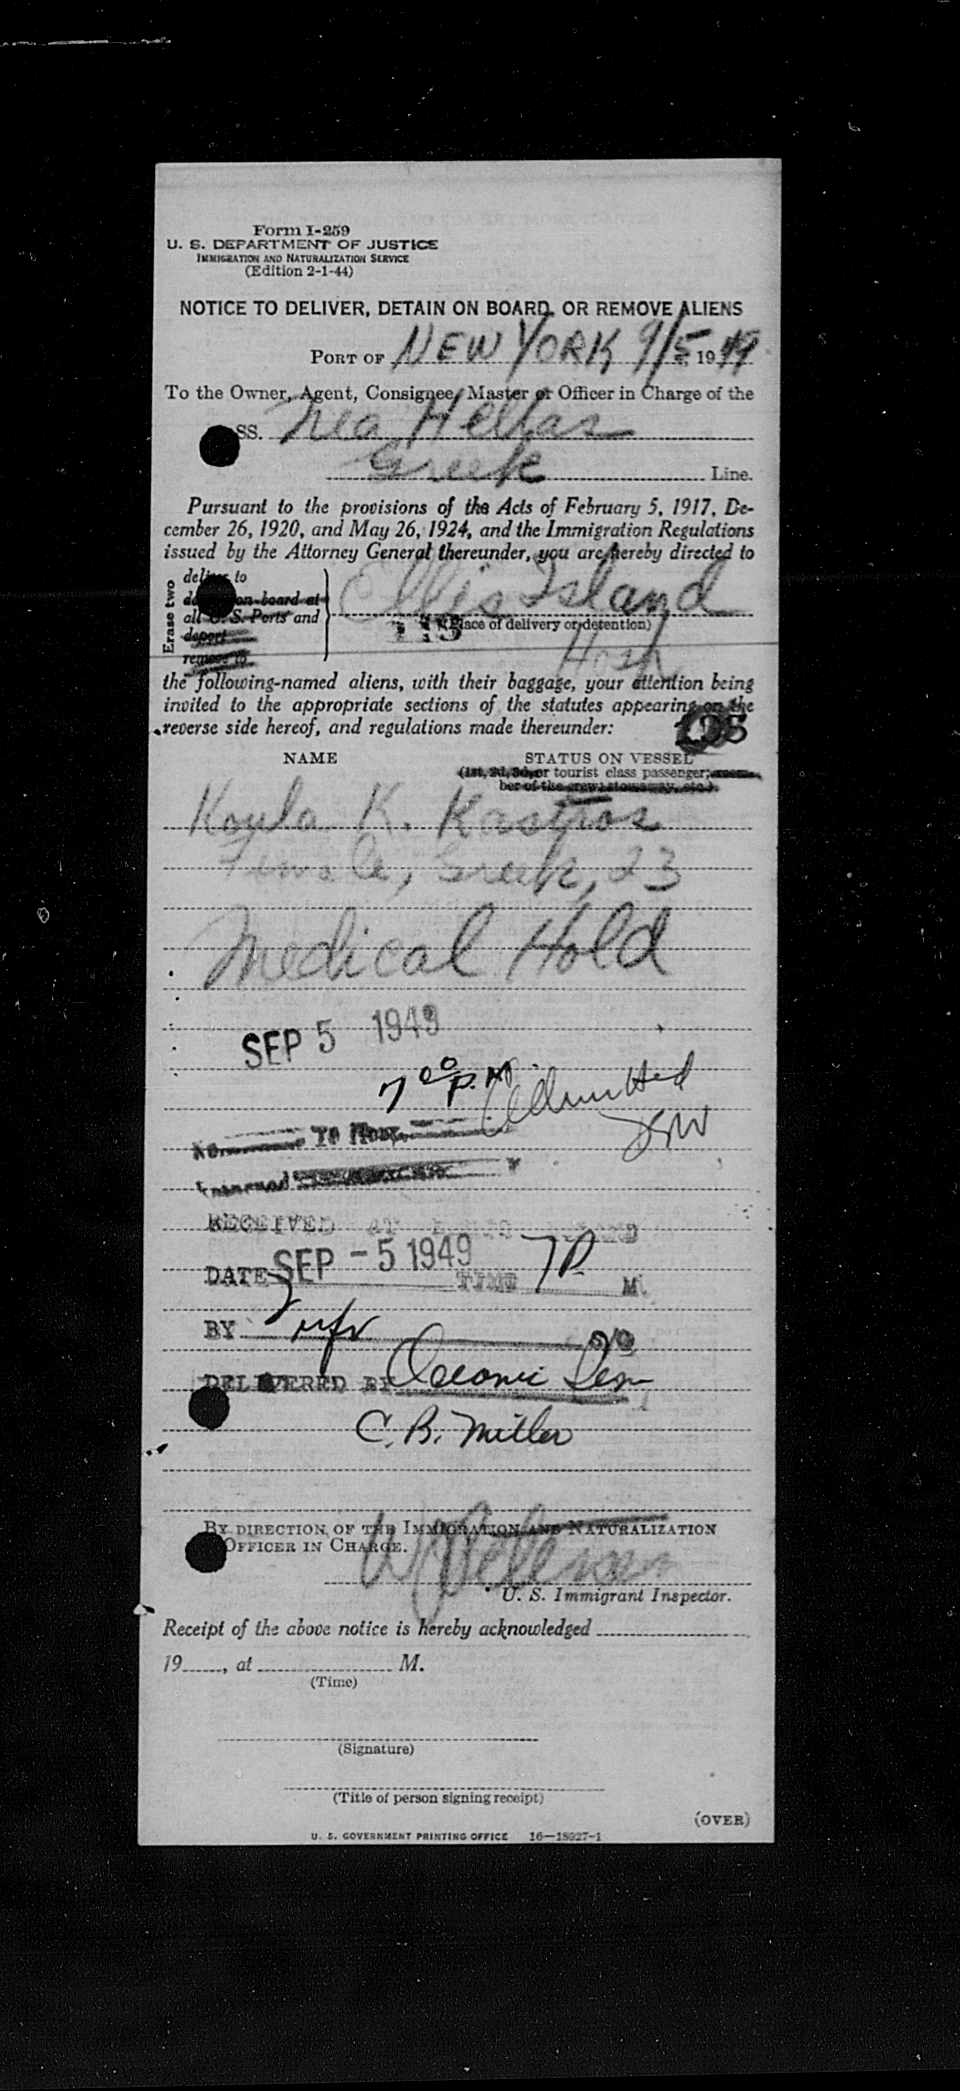 Form I-259
U. S. DEPARTMENT OF JUSTICE
IMMIGRATION AND NATURALIZATION SERVICE
(Edition 2-1-44)
NOTICE TO DELIVER, DETAIN ON BOARD, OR REMOVE ALIENS
PORT OF NEW YORK 9/5, 1949
To the Owner, Agent, Consignee, Master or Officer in Charge of the
SS. Nea Hellas
Greek Line.
Pursuant to the provisions of the Acts of February 5, 1917, De-
cember 26, 1920, and May 26, 1924, and the Immigration Regulations
issued by the Attorney General thereunder, you are hereby directed to
Erase two
deliver to
detain on board at
all U. S. Ports and
deport
remove to
Ellis Island
(Place of delivery or detention)
Hosp
the following-named aliens, with their baggage, your attention being
invited to the appropriate sections of the statutes appearing on the
reverse side hereof, and regulations made thereunder:
NAME STATUS ON VESSEL
(1st, 2d, 3d, or tourist class passenger; mem-
ber of the crew; stowaway, etc.)
Koula K. Kastros
Female, Greek, 23
Medical Hold
SEP 5 1949
7 00 P.M. Admitted
TO HOSP.
RECEIVED AT ELLIS ISLAND
DATE SEP - 5 1949 TIME 7 P. M.
BY
DELIVERED BY Oceanic
C. B. Miller
BY DIRECTION OF THE IMMIGRATION AND NATURALIZATION
OFFICER IN CHARGE.
U. S. Immigrant Inspector.
Receipt of the above notice is hereby acknowledged
19____, at ____ M.
(Time)
(Signature)
(Title of person signing receipt)
(OVER)
U. S. GOVERNMENT PRINTING OFFICE 16—18927-1